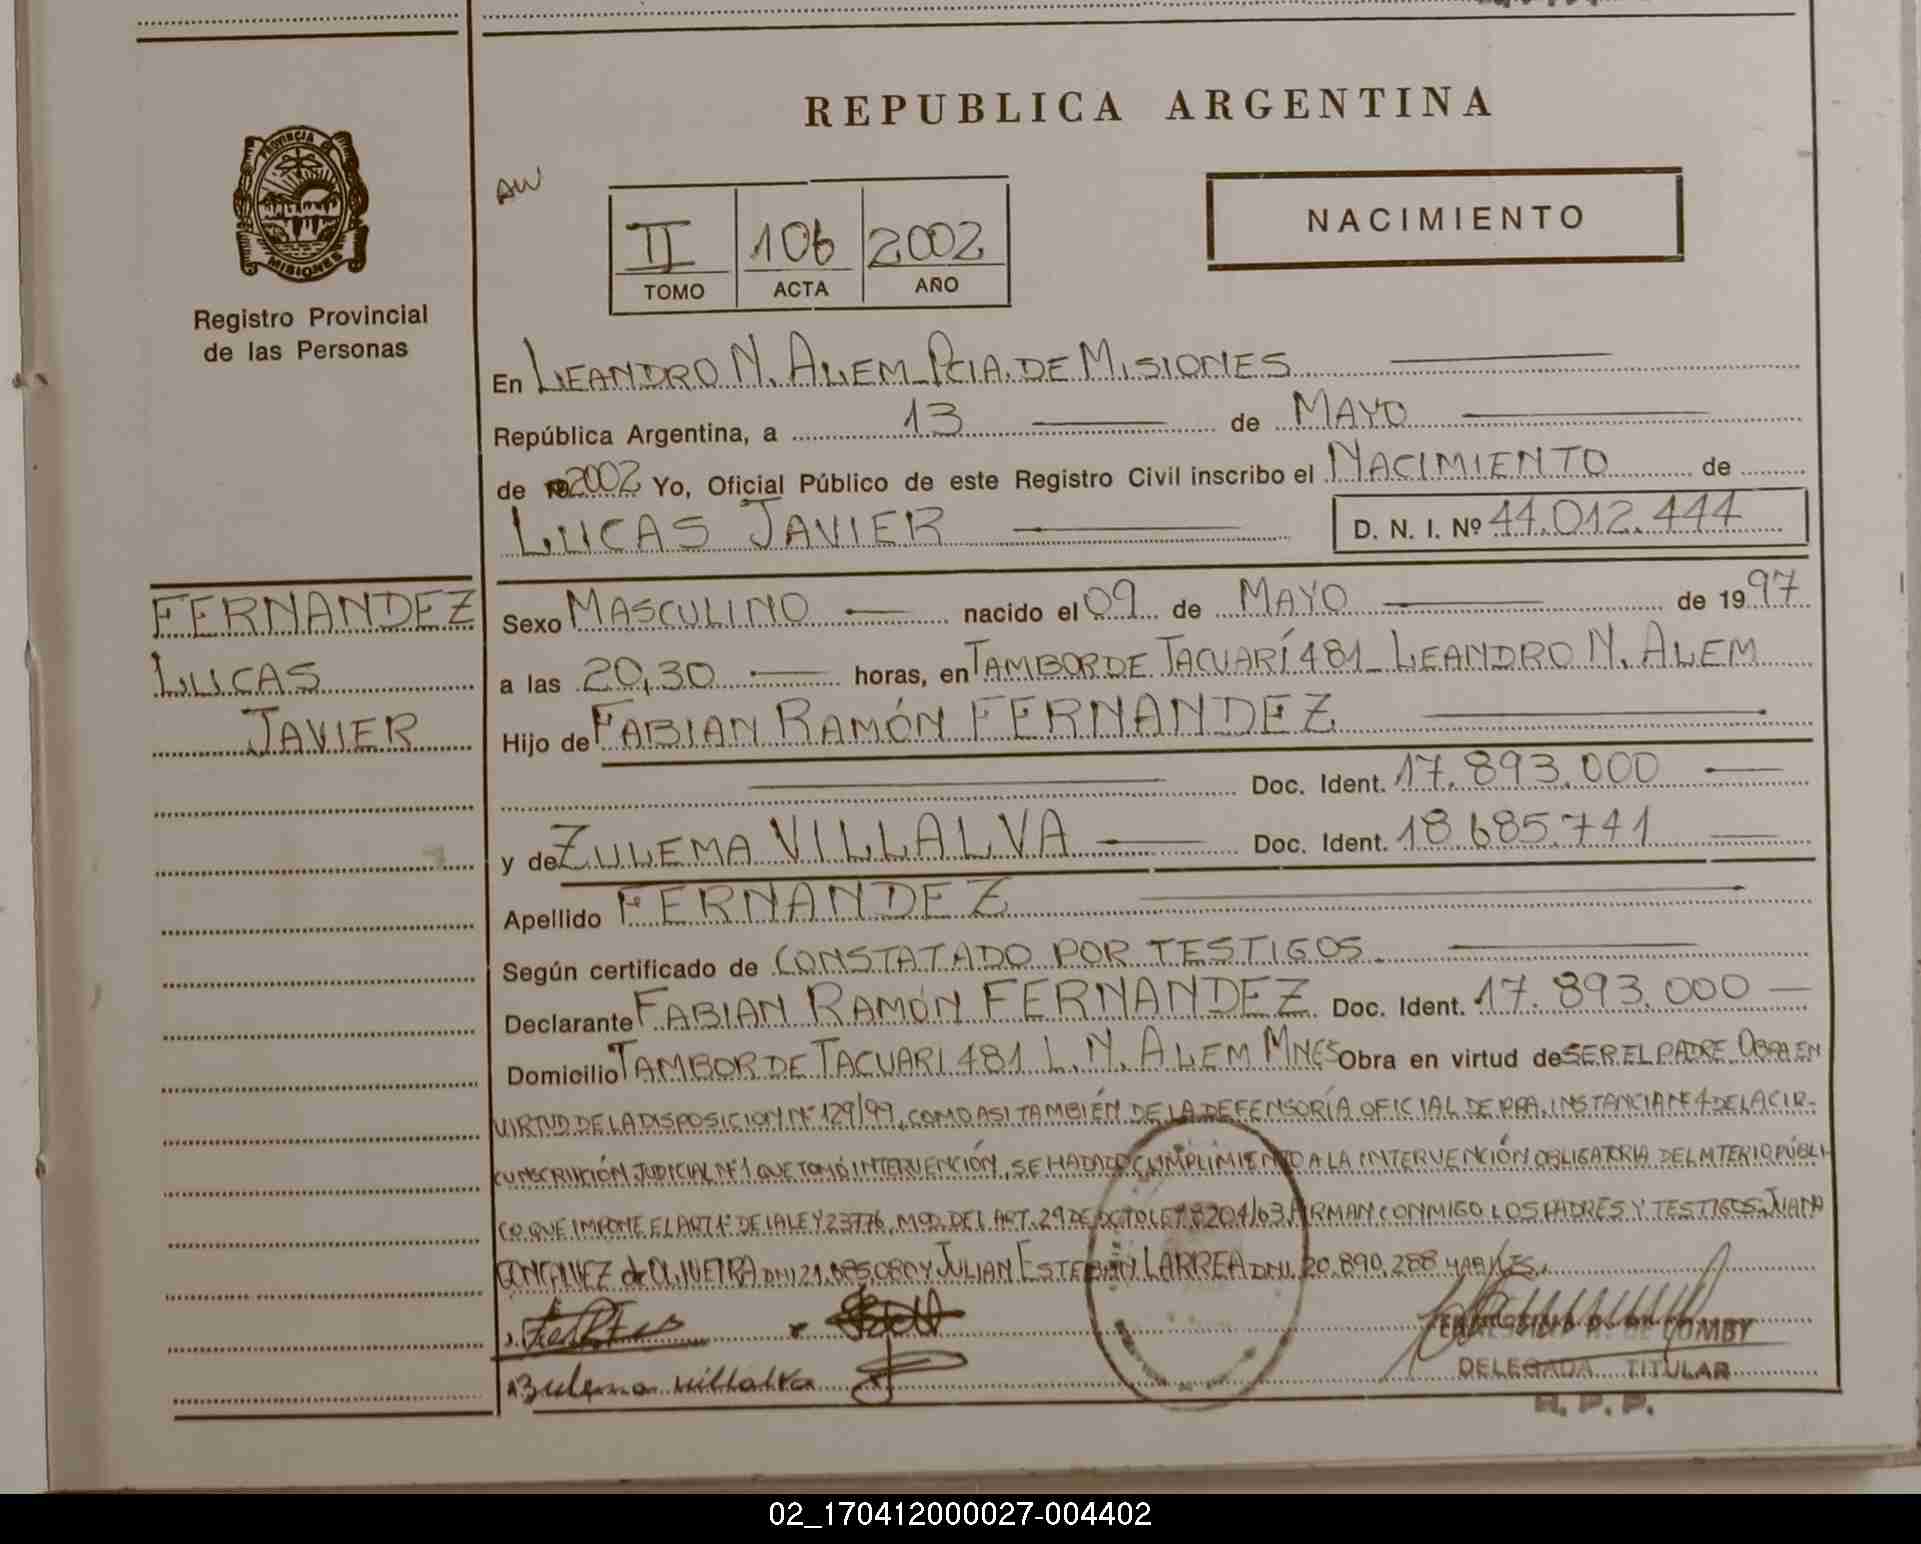 REPUBLICA ARGENTINA
PROVINCIA DE
MISIONES
Registro Provincial
de las Personas
AW
II 106 2002
TOMO ACTA AÑO
NACIMIENTO
En LEANDRO N. ALEM_PCIA. DE MISIONES
República Argentina, a 13 de MAYO
de 2002 Yo, Oficial Público de este Registro Civil inscribo el NACIMIENTO de
LUCAS JAVIER D. N. I. Nº 44.012.444
FERNANDEZ
LUCAS
JAVIER
Sexo MASCULINO nacido el 09 de MAYO de 1997
a las 20,30 horas, en TAMBOR DE TACUARÍ 481_LEANDRO N. ALEM
Hijo de FABIAN RAMÓN FERNANDEZ
Doc. Ident. 17.893.000
y de ZULEMA VILLALVA Doc. Ident. 18.685.741
Apellido FERNANDEZ
Según certificado de CONSTATADO POR TESTIGOS.
Declarante FABIAN RAMÓN FERNANDEZ Doc. Ident. 17.893.000
Domicilio TAMBOR DE TACUARI 481 L. N. ALEM MNES Obra en virtud de SER EL PADRE OBRA EN
VIRTUD DE LA DISPOSICION Nº 129/99, COMO ASI TAMBIÉN DE LA DEFENSORÍA OFICIAL DE PRA. INSTANCIA Nº 4 DE LA CIR-
CUNSCRIPCIÓN JUDICIAL Nº 1 QUE TOMÓ INTERVENCIÓN, SE HA DADO CUMPLIMIENTO A LA INTERVENCIÓN OBLIGATORIA DEL MTERIO PÚBLI-
CO QUE IMPONE EL ART 1º DE LA LEY 23776, MOD. DEL ART. 29 DE DCTO LEY 8204/63. FIRMAN CONMIGO LOS PADRES Y TESTIGOS: JUANA
GONCALVEZ de OLIVEIRA DNI 21.685.080 Y JULIAN ESTEBAN LARREA DNI. 20.890.288 HABILES.
Zulema villalva
DE COMBY
DELEGADA TITULAR
R. P. P.
02_170412000027-004402